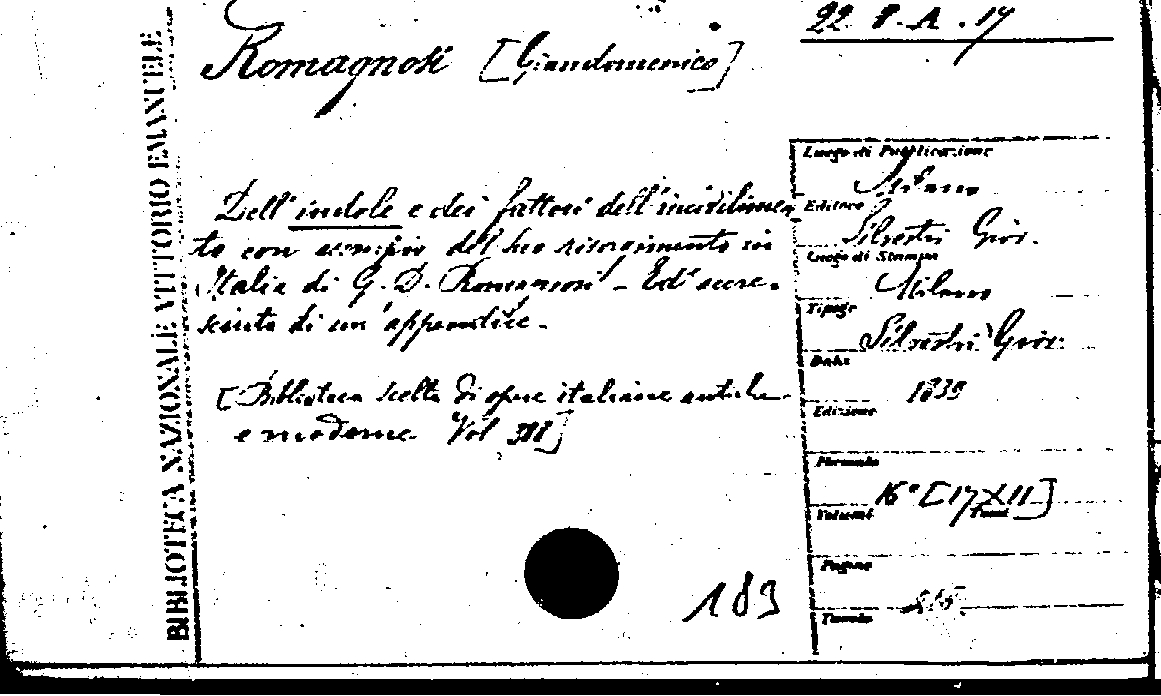 22. 8. A. 14
Romagnosi [Giandomenico]
BIBLIOTECA NAZIONALE VITTORIO EMANUELE
Dell' indole e dei fattori dell' incivilimen-
to con esempio del suo risorgimento in
Italia di G. D. Romagnosi - Ed.e accre-
sciuta di un' appendice.
[Biblioteca scelta di opere italiane antiche
e moderne Vol
183
Luogo di Pubblicazione
Milano
Editore
Silvestri Giov.
Luogo di Stampa
Milano
Tipogr.
Silvestri Giov.
Data
1839
Edizione
Formato
16° [17 X 11]
Volumi
Pagine
Tavole